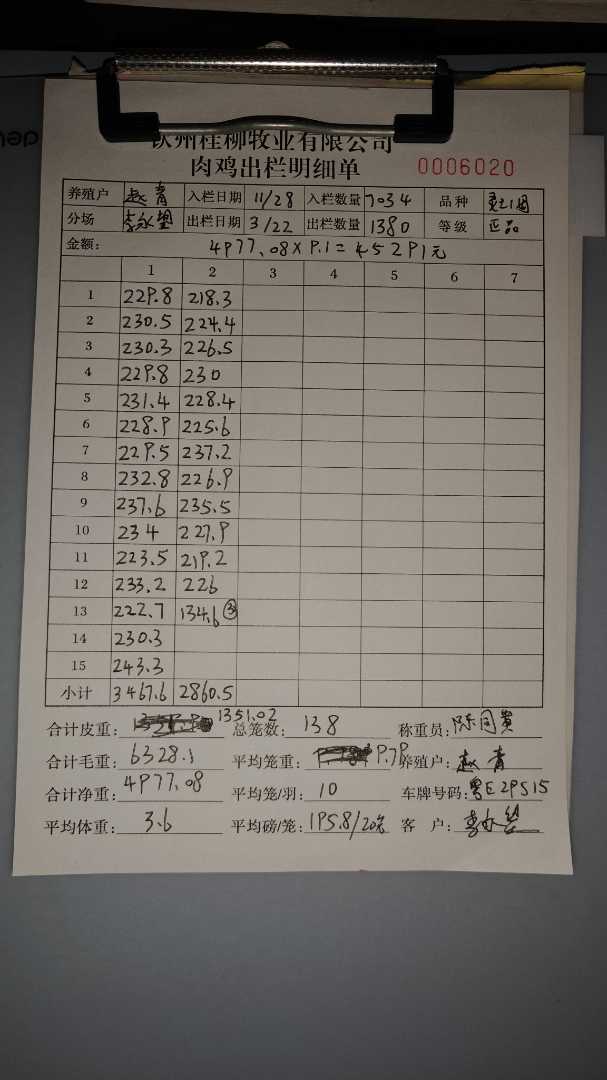 钦州桂柳牧业有限公司
肉鸡出栏明细单 0006020
养殖户 赵青 入栏日期 11/28 入栏数量 7034 品种
分场 出栏日期 3/22 出栏数量 1380 等级 正品
金额: 4977.08×9.1=45291元
1 2 3 4 5 6 7
1 229.8 218.3
2 230.5 224.4
3 230.3 226.5
4 229.8 230
5 231.4 228.4
6 228.9 225.6
7 229.5 237.2
8 232.8 226.9
9 237.6 235.5
10 234 227.9
11 223.5 219.2
12 233.2 226
13 222.7 134.6 ③
14 230.3
15 243.3
小计 3467.6 2860.5
合计皮重: 1351.02 总笼数: 138 称重员:
合计毛重: 6328.1 平均笼重: 9.79 养殖户: 赵青
合计净重: 4977.08 平均笼/羽: 10 车牌号码: 粤E29S15
平均体重: 3.6 平均磅/笼: 195.8/20 客户: